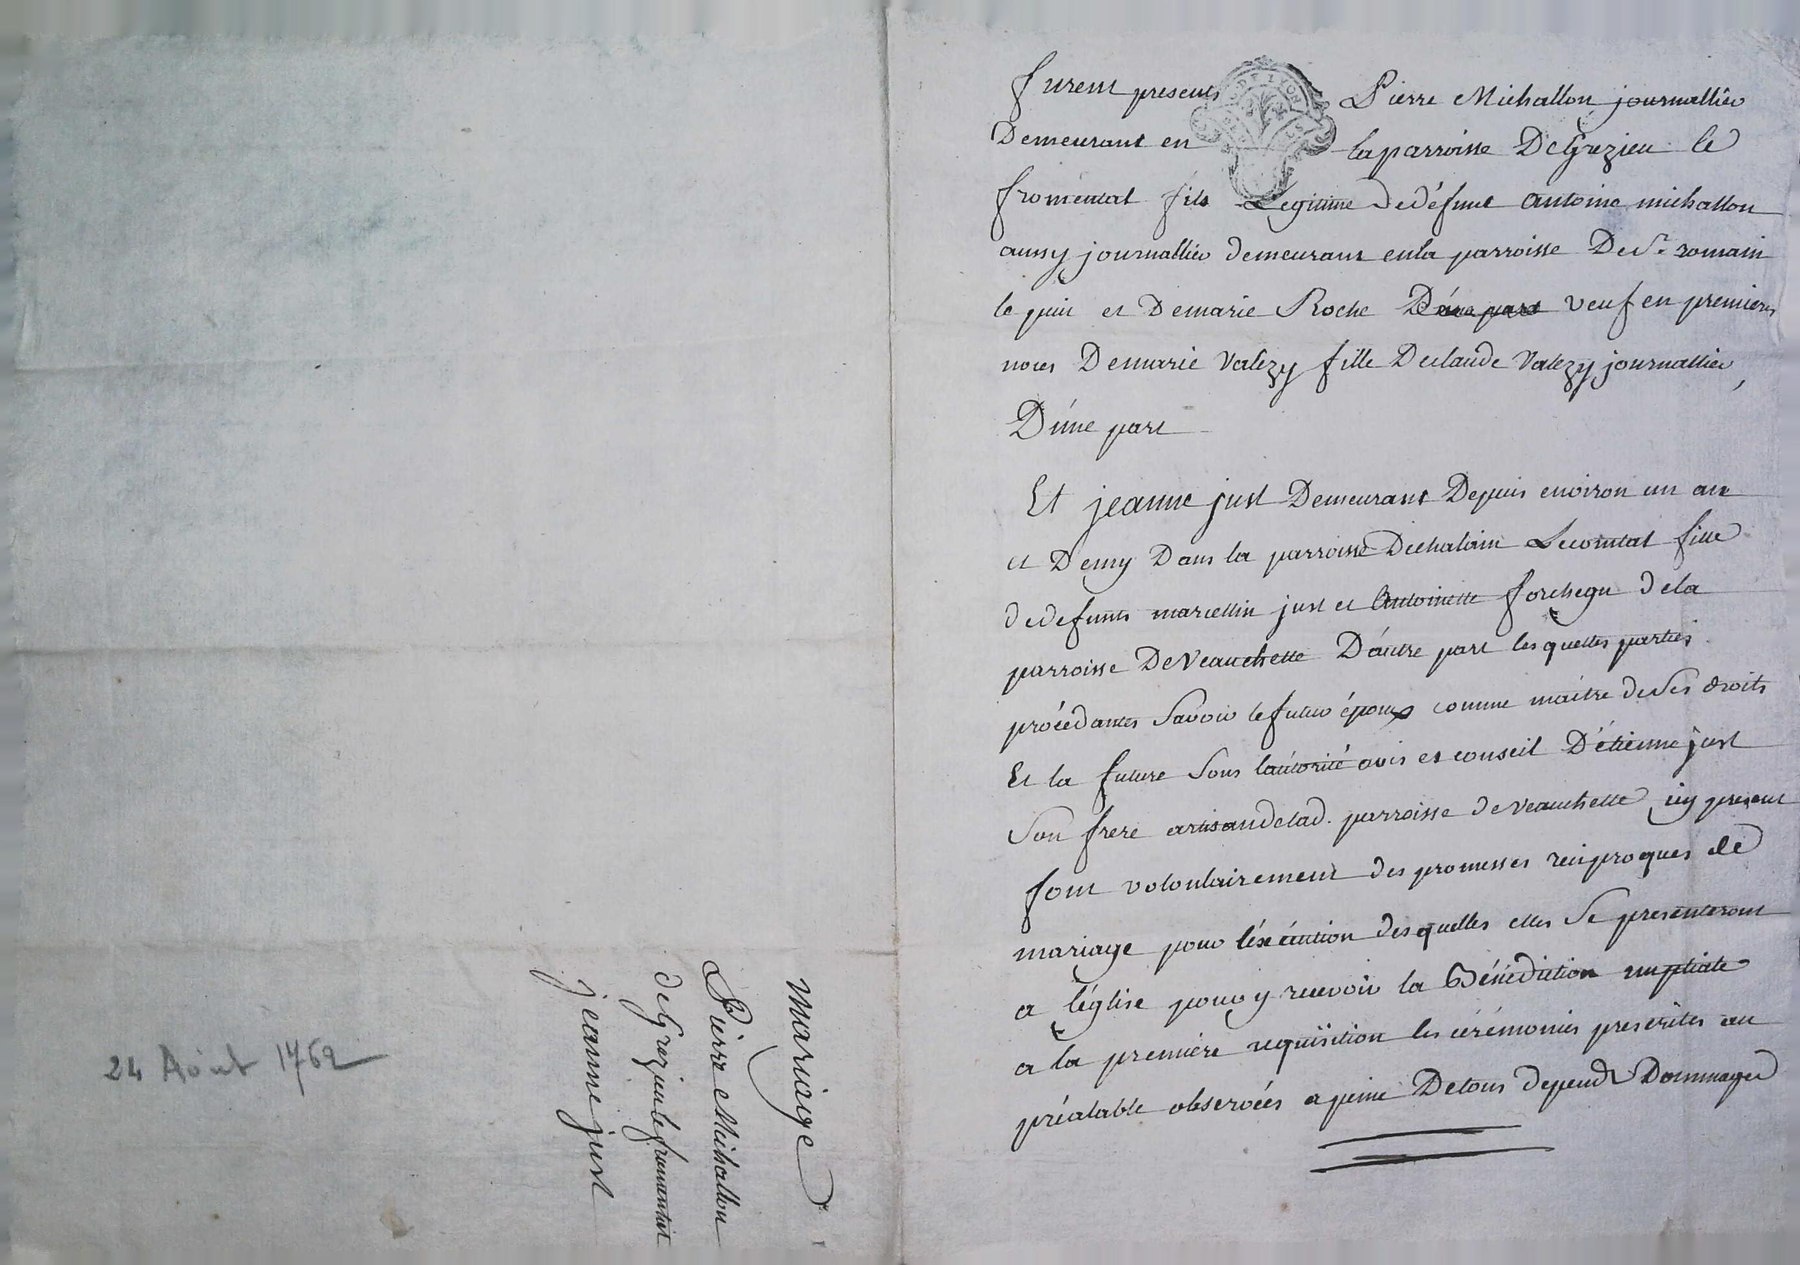 mariage
Pierre Michallon
de Grezieu le fromental
jeanne just
24 Août 1762
furent presents Pierre Michallon journallier
Demeurant en la parroisse De Grezieu le
fromental fils Légitime de défunt antoine michallon
aussy journallier demeurant en la parroisse De St. romain
le puit et De marie Roche D'úne part veuf en premieres
noces De marie Valezy fille De claude Valezy journallier,
D'úne part
Et jeanne just Demeurant Depuis environ un an
et Demy Dans la parroisse De chalain Le comtal fille
de defunts marcellin just et Antoinette forchegu de la
parroisse De Veauchette D'aútre part les quelles parties
procédantes Savoir le futur époux comme maître de Ses droits
Et la future Sous l'aútorité avis et conseil D'étienne just
Son frere artisan de lad. parroisse de veauchette icy present
font volontairement des promesses reciproques de
mariage pour l'éxécution des quelles elles Se presenteront
a l'église pour y recevoir la Bénédiction nuptiale
a la premiére requisition les cérémonies prescrites au
préalable observées a peine De tous depends Dommages